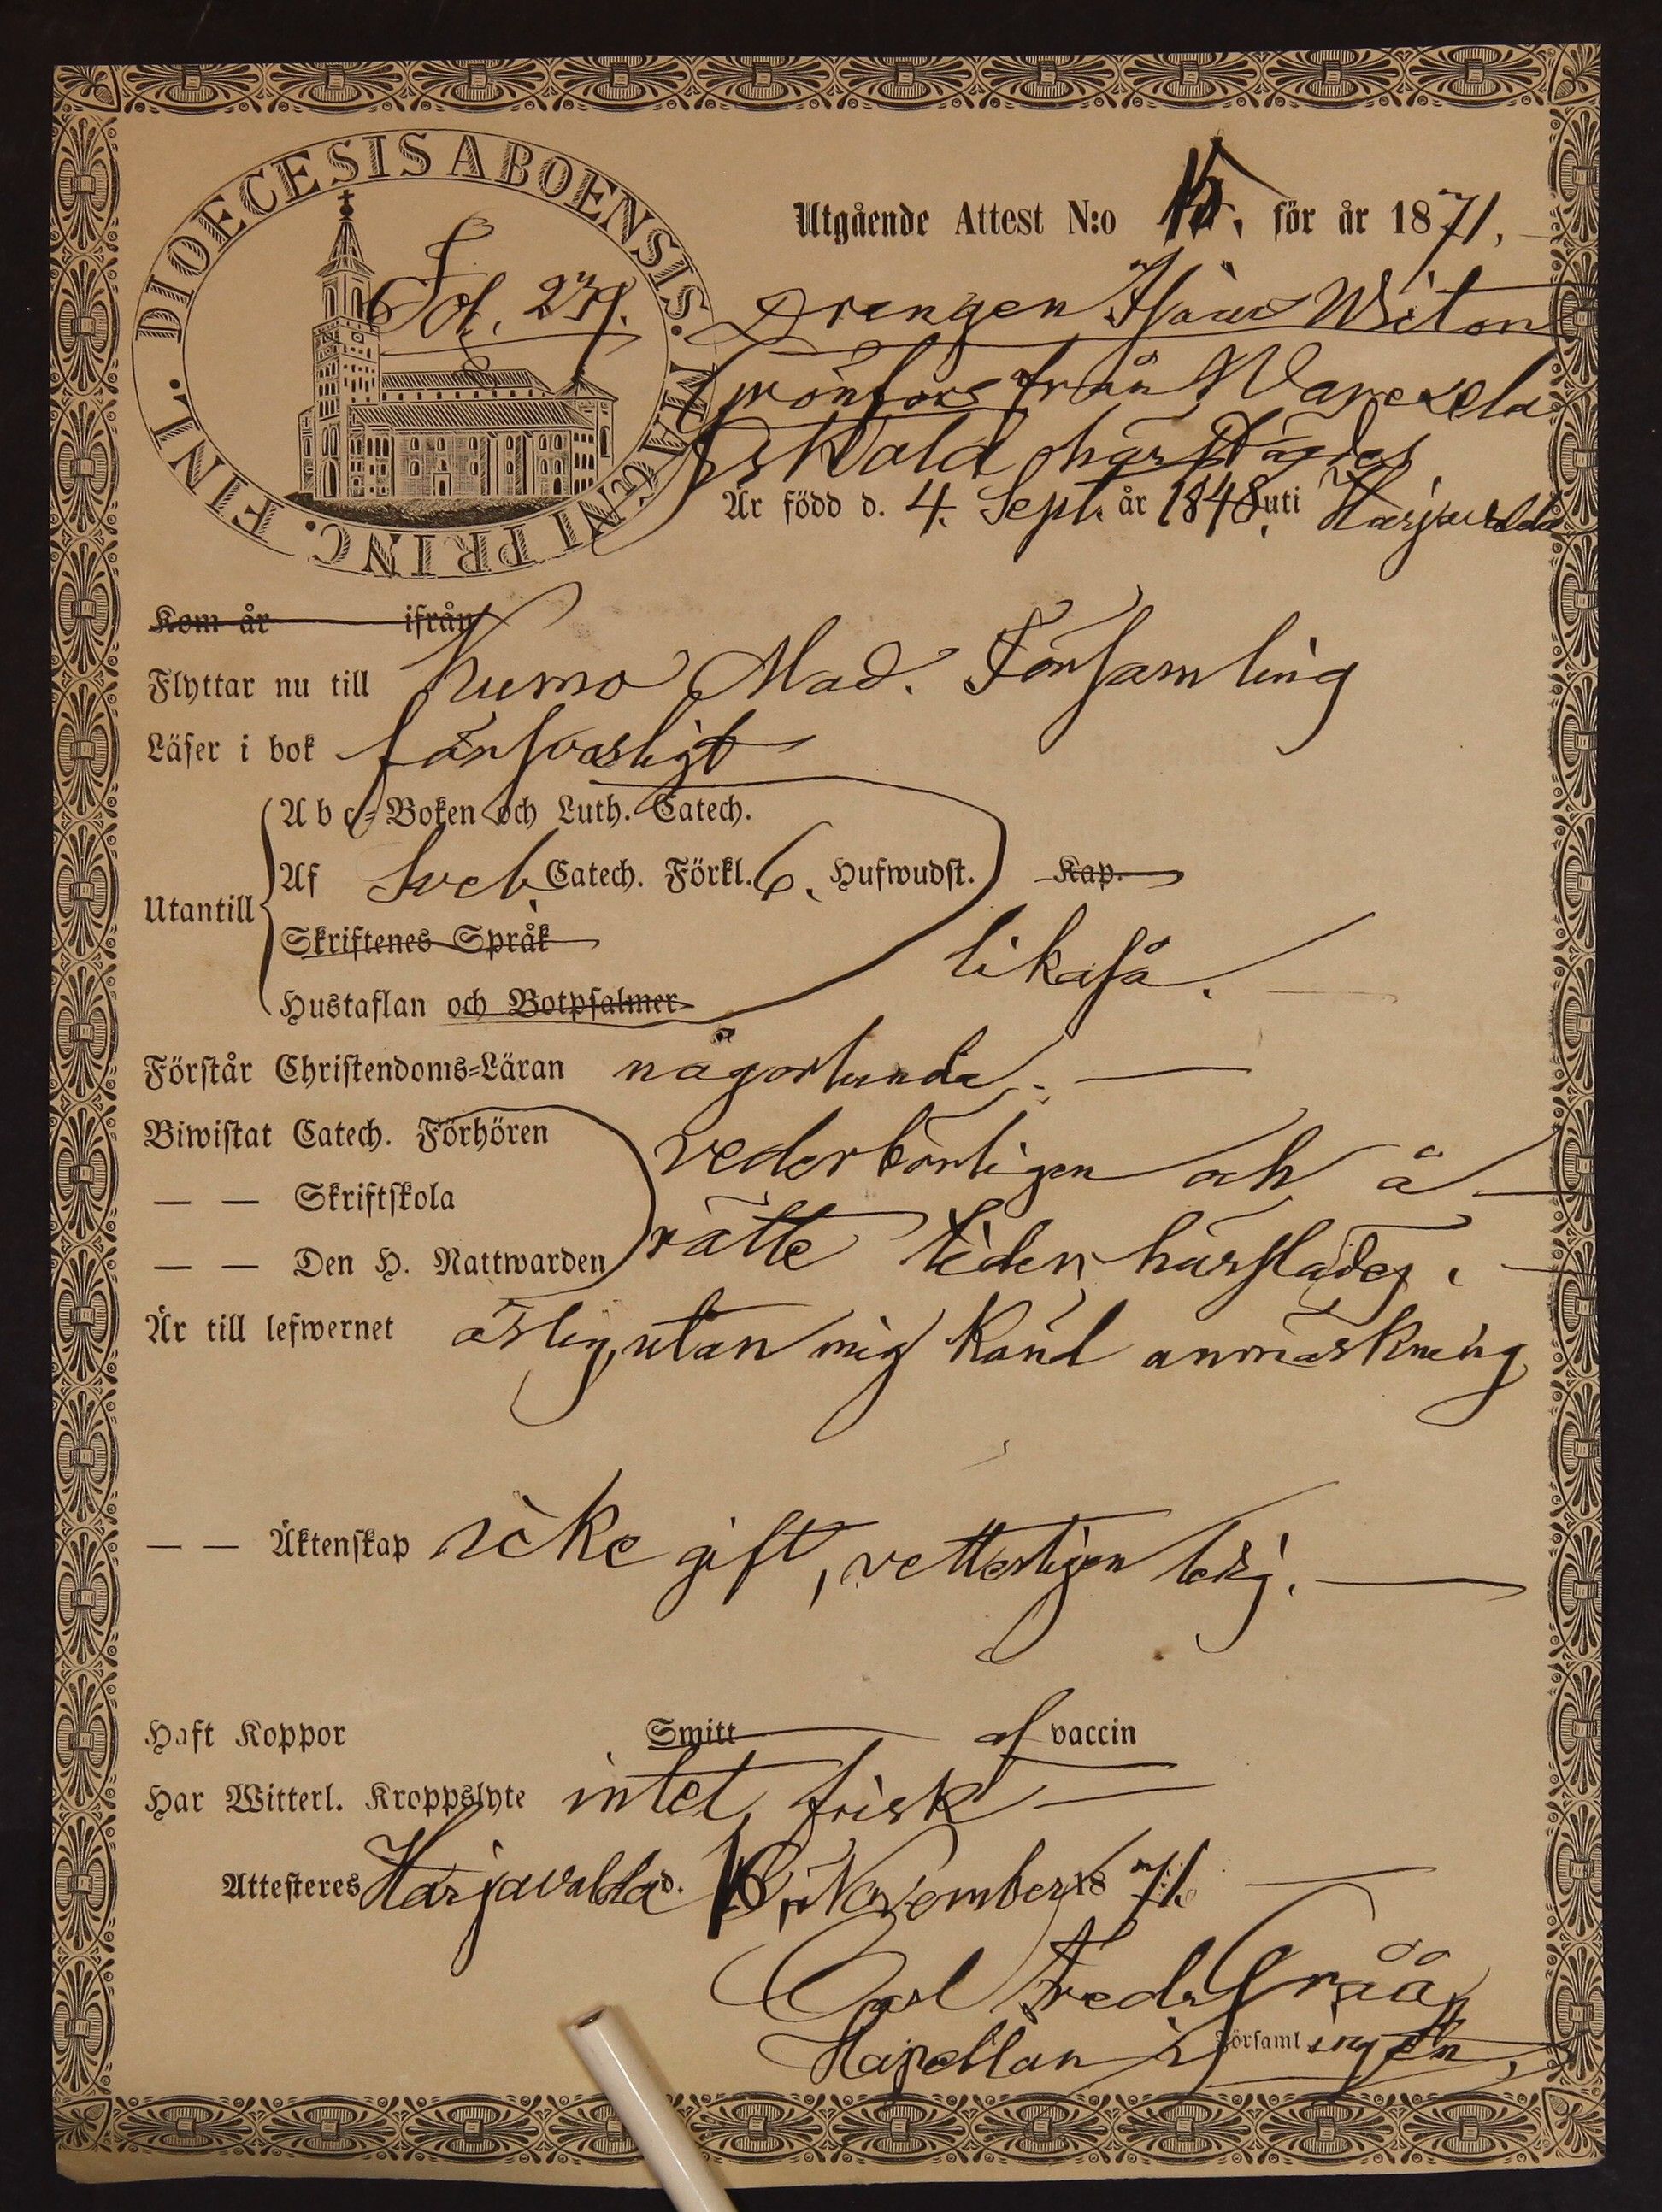 FINL. DIOECESIS ABOENSIS. M. DUC. NI PRINC.
Fol. 279.
Utgående Attest N:o 15. för år 1871.
Drengen Isaac Witon
Grönfors från
härstädes
Är född d. 4. Sept. år 1848. uti Harjavalda
Kom år ifrån
Flyttar nu till Kumo Mad. Församling
Läser i bok försvarligt
Abc-Boken och Luth. Catech.
Utantill Af Sveb. Catech. Förkl. 6. Hufwudst. Kap.
Skriftenes Språk
likaså.
Hustaflan och Botpsalmer
Förstår Christendoms-Läran någorlunda.
Biwistat Catech. Förhören vederbörligen och å
— — Skriftskola
— — Den H. Nattwarden rätte tider härstädes.
Är till lefwernet ärlig, utan mig känd anmärkning
— — Äktenskap icke gift, vetterligen ledig.
Haft Koppor Smitt af vaccin
Har Witterl. Kroppslyte intet, frisk
Attesteres Harjavalda d. 16. November 1871.
Carl Fredr. Grää
Kapellan i Församlingen